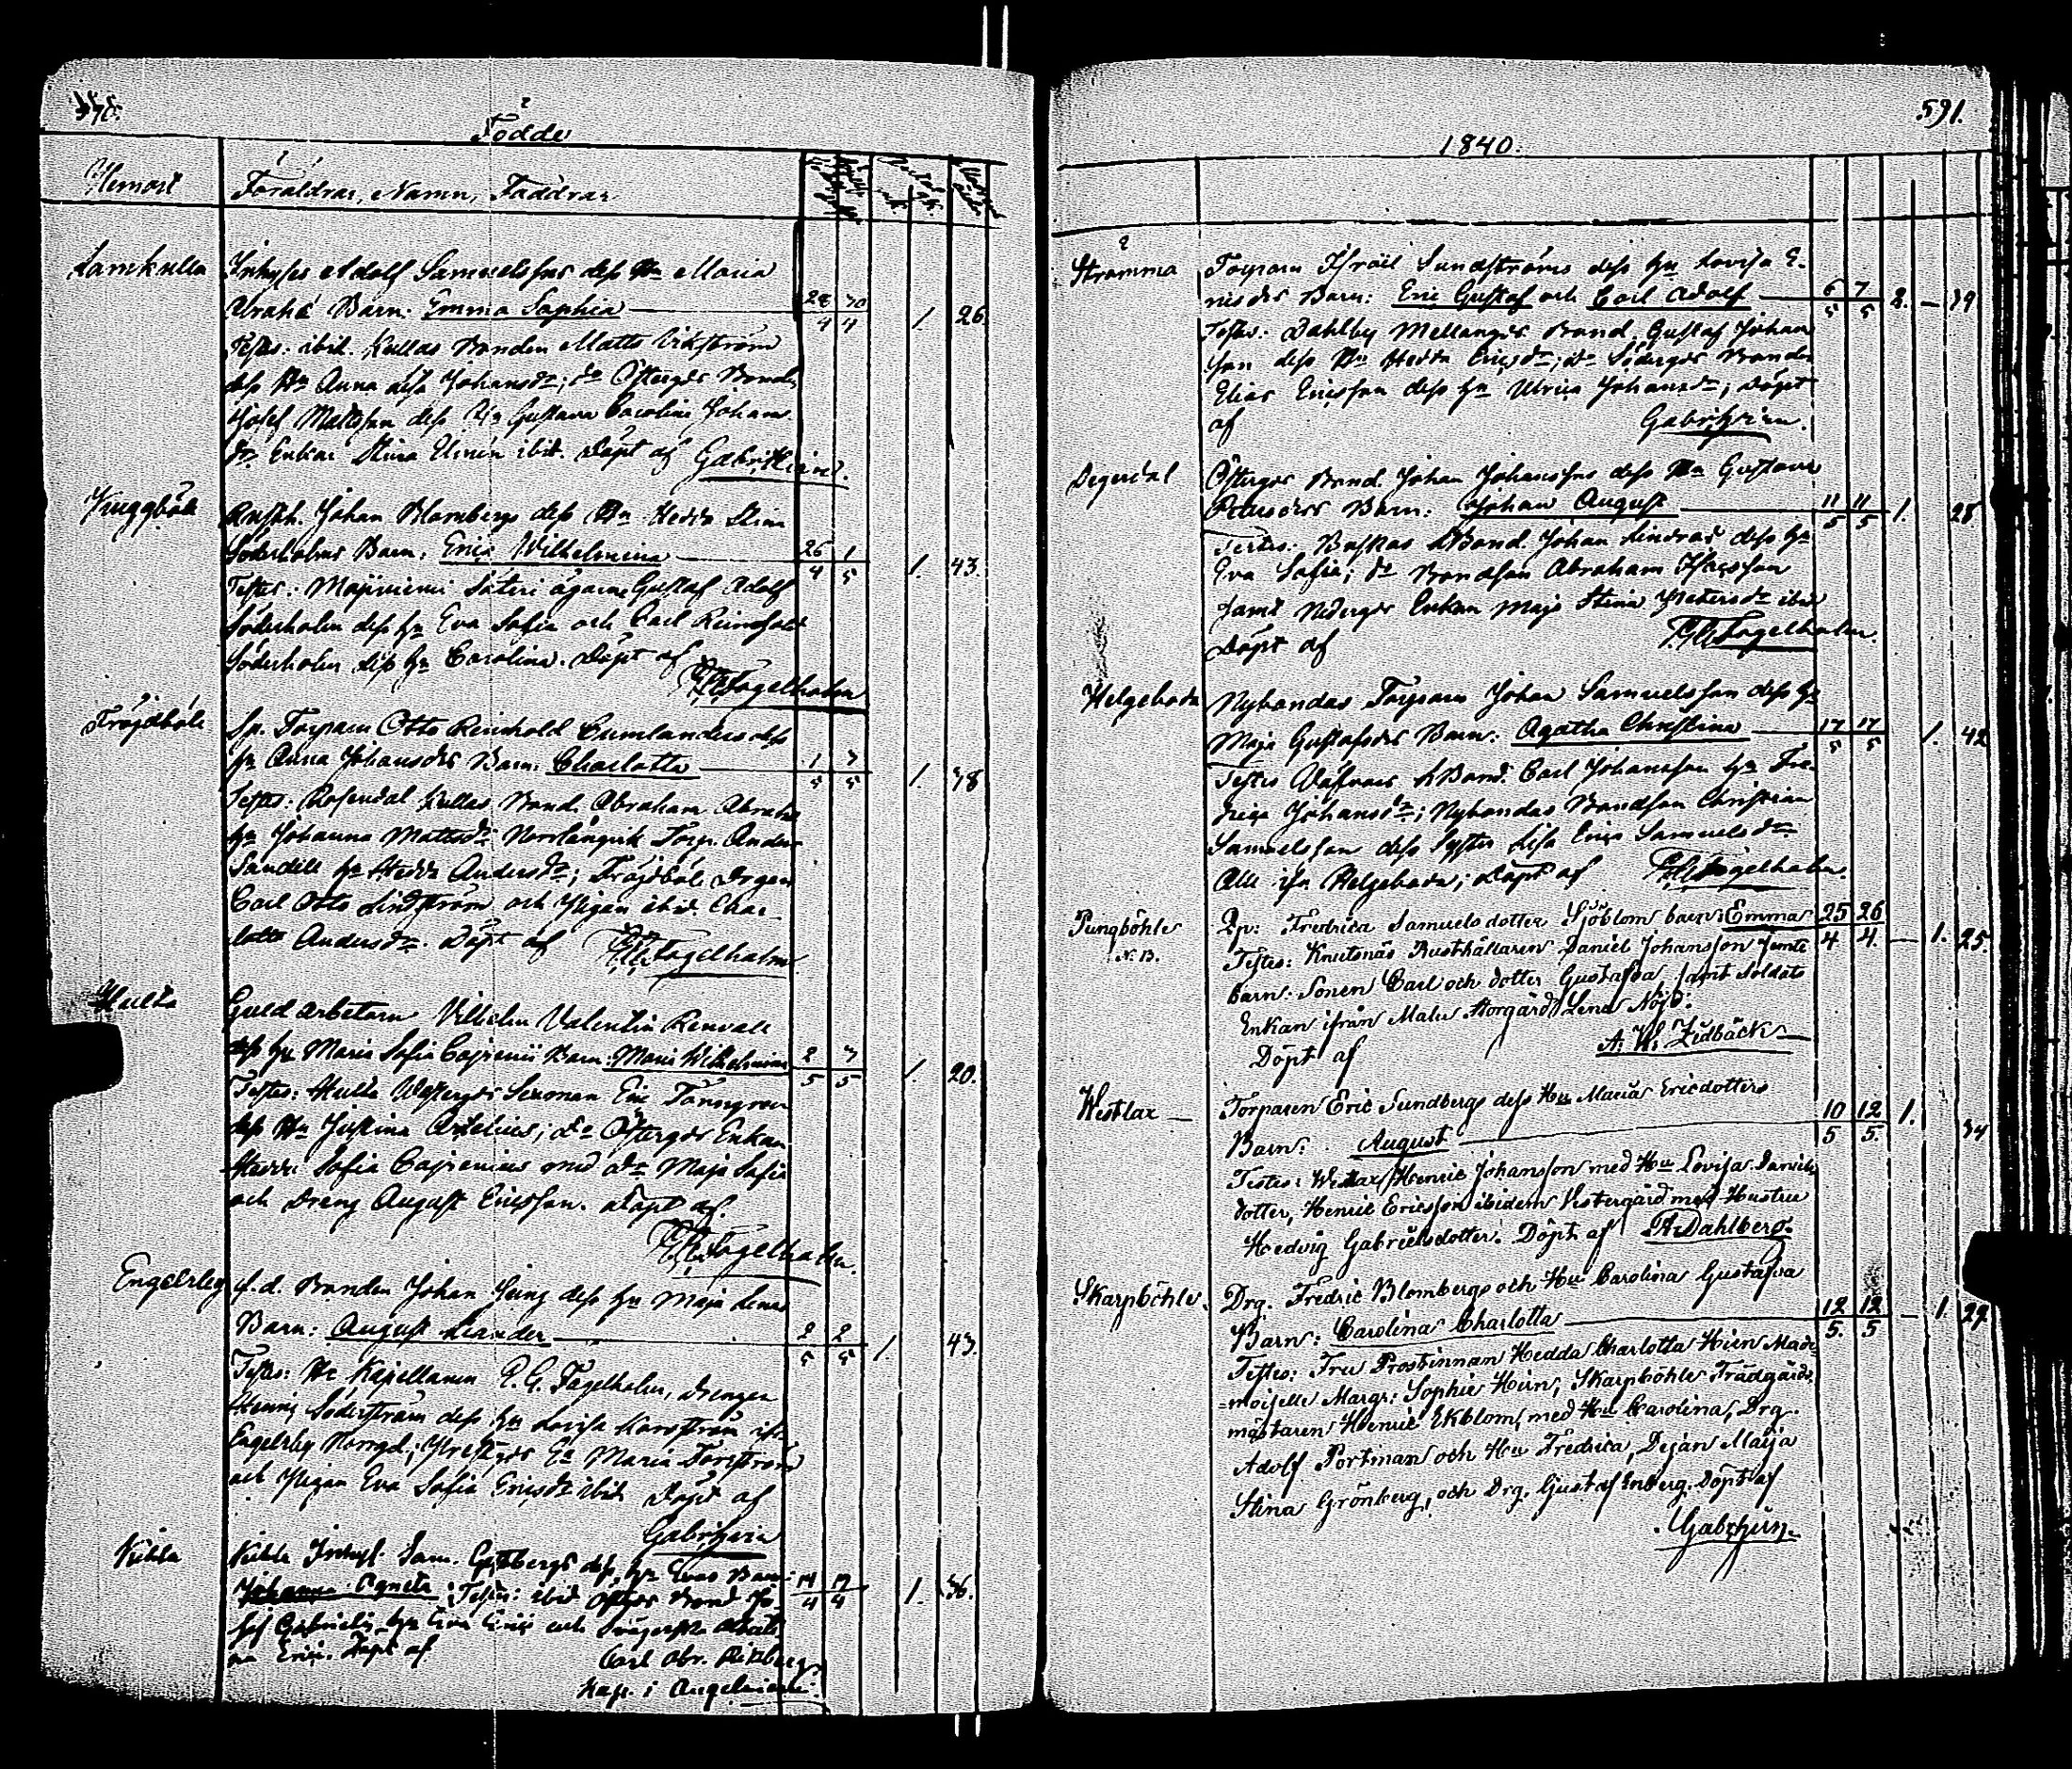 Födde
Hemort Föräldrar, Namn, Faddrar
Lamkulla Inhyses Adolf Samuelssons dess Hu Maria
Abrahs Barn: Emma Sophia 28/4 30/4 1. 26.
Testes: ibid. Kullas Bonden Matts Vikström
dess Hu Anna Lisa Johansdr; do Östergds Bond.
Josef Mattsson dess Hu Gustava Carolina Johans
dr. Enkan Stina Elmén ibid. Döpt af Gabr: Hirn.
Johan Blombergs dess Hu Hedda Stina
Söderholms Barn: Erica Wilhelmina 26/4 1/5 1. 43.
Testes: Majniemi Säteri ägarne Gustaf Adolf
Söderholm dess Hu Eva Sofia och Carl Reinhold
Söderholm dess Hu Carolina. Döpt af
Fagelholm
Fröjdböle Sp. Torparn Otto Reinhold Cumlanders dess
Hu Anna Johansdrs Barn: Charlotta 1/5 3/5 1. 38
Testes: Rosendal Kullas Bond. Abraham Abrahs
Hu Johanna Mattsdr; Norrlångvik Torp. Anders
Sandell Hu Hedda Andersdr; Fröjdböle Drgen
Carl Otto Lindström och Pigan ibid. Char-
lotta Andersdr. Döpt af Fagelholm
Hulta Guldarbetarn Vilhelm Valentin Renvall
dess Hu Maria Sofia Cajrenii Barn: Maria Wilhelmina 2/5 3/5 1. 20.
Testes: Hulta Westergds Sexman Eric
dess Hu Justina Artelius; do Östergds Enkan
Hedda Sofia Cajrenius med dr Maja Sofia
och Dreng August Ericsson. Döpt af
Fagelholm.
Engelsby f.d. Bonden Johan dess Hu Maja Lenas
Barn: August Leander 2/5 2/5 1. 43.
Testes: Hr Kapellanen P. G. Fagelholm, Drengen
Henric Söderström dess Hu Lovisa
Engelsby Norrgd; Prestgds Maria
och Pigan Eva Sofia Ericsdr ibid. Döpt af
Gabr: Hirn
Kihla Kihla Inhys. Sam. dess Hu Evas Barn: 14/4 17/4 1. 36.
Johanna Agneta Testes: ibid Östgds Bond. Jo-
sef Gabrielss. Hu Eva Erics och
Erics. Döpt af Carl Abr.
Kap. i Angelniemi.
591.
1840.
Strömma Torparn Israël Sundströms dess Hu Lovisa E-
ricsdrs Barn: Eric Gustaf och Carl Adolf 6/5 7/5 2. — 39
Testes: Dahlby Mellangds Bond. Gustaf Johan
son dess Hu Hedda Ericsdr; do Södergds Bonden
Elias Ericsson dess Hu Ulrica Johansdr; Döpt
af Gabr: Hirn.
Degerdal Östergds Bond. Johan Johanssons dess Hu Gustava
Petersdrs Barn: Johan August 11/5 11/5 1. 28
Testes: Buskas Bond. Johan Lindros dess Hu
Eva Sofia; do Bondson Abraham Isacsson
samt Nedergds Enkan Maja Stina Petersdr ibid
Döpt af Fagelholm.
Helgeboda Nybondas Torparn Johan Samuelsson dess Hu
Maja Gustafsdrs Barn: Agatha Christina 17/5 17/5 1. 42
Testes Bond. Carl Johansson Hu Fre-
drica Johansdr; Nybondas Bondson Christian
Samuelsson dess Syster Lisa Erica Samuelsdr
Alle ifn Helgeboda; Döpt af Fagelholm.
Pungböhle Qp: Fredrica Samuelsdotter Sjöblom barn: Emma 25/4 26/4. — 1. 25
N. 13. Testes: Knutsnäs Rusthållaren Daniel Johansson jemte
barn: Sonen Carl och dotter Gustafva samt Soldats
Enkan ifrån Malu Storgård Lena Nöjd.
Döpt af A. W. Lidbäck
Westlax — Torparen Eric Sundbergs dess Hu Maria Ericdotters
Barn: August 10/5 12/5. 1. 34
Testes: Westlax Henric Johansson med Hu Lovisa Daniels
dotter, Henric Ericsson ibidem Vestergård med Hustru
Hedvig Gabrielsdotter. Döpt af A. Dahlberg.
Skarpböhle. Drg. Fredric Blombergs och Hu Carolina Gustafva
Barn: Carolina Charlotta 12/5. 12/5 — 1. 29
Testes: Fru Prostinnan Hedda Charlotta Hirn Made-
=moiselle Margr: Sophie Hirn, Skarpböhle Trädgårds
mästaren Henric Ekblom med Hu Carolina, Drg.
Adolf Portman och Hu Fredrica, Dejan Maija
Stina Grönberg, och Drg. Gustaf Enberg. Döpt af
Gabr: Hirn.